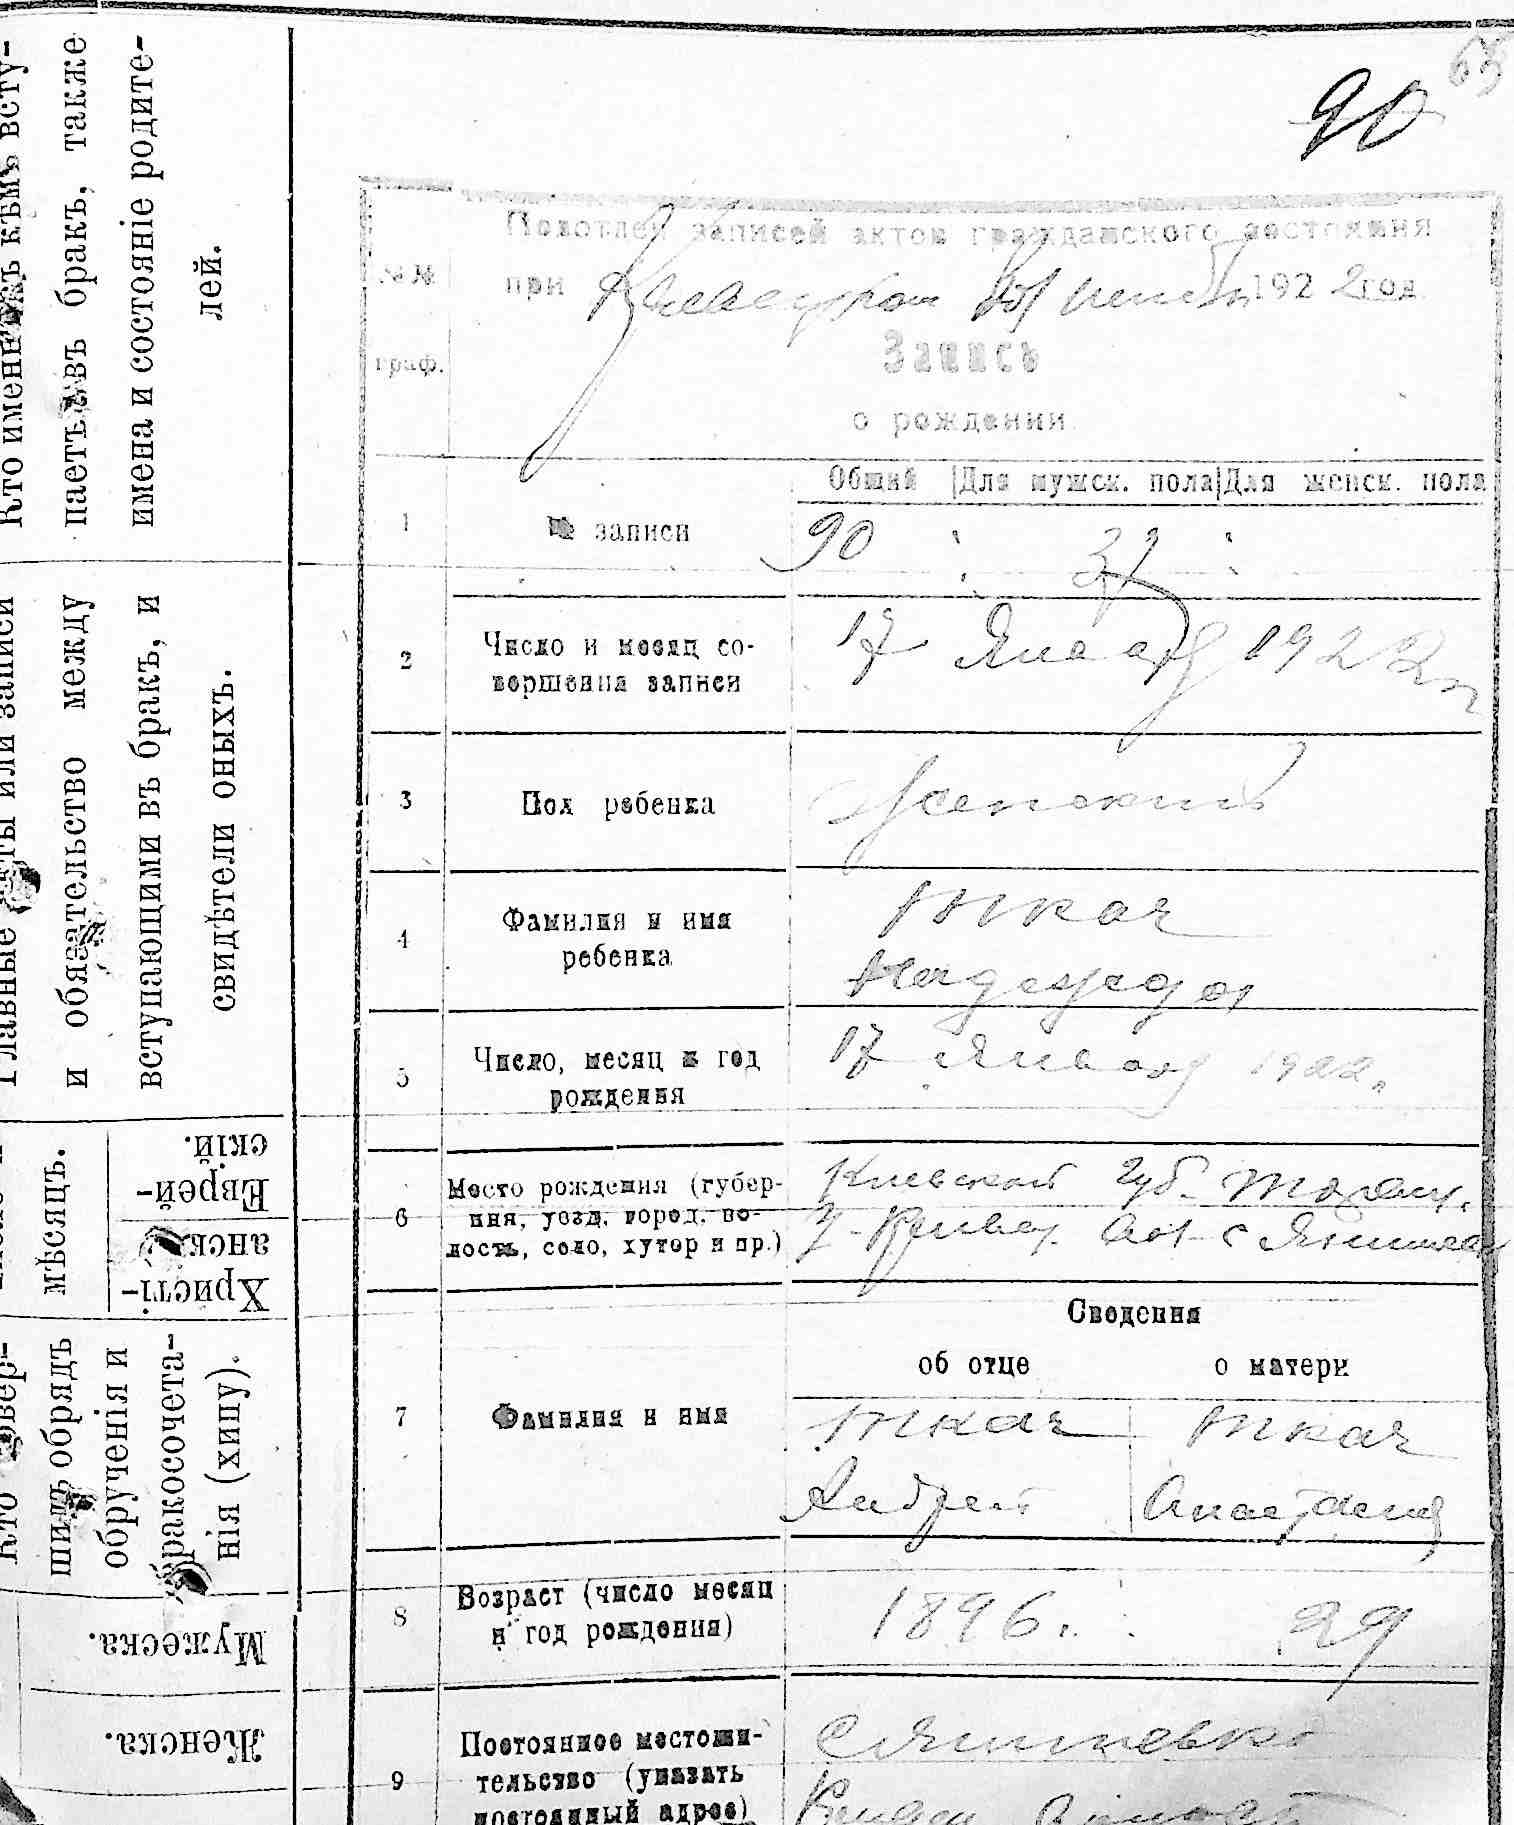 Кто имен къмъ всту-
паетъ въ бракъ, также
имена и состоянiе родите-
лей.
Главные или записи
и обязательство между
вступающими въ бракъ, и
свидѣтели оныхъ.
мѣсяцъ.
Еврей-
скiй.
Христi-
анск
Кто совер-
шилъ обрядъ
обрученiя и
бракосочета-
нiя (хипу).
Мужеска.
Женска.
63
90
№№
граф.
Подотдел записей актов гражданского состояния
при 1922 год
Запись
о рождении
Общий Для мужск. пола Для женск. пола
1 № записи 90 37
2 Число и месяц со-
вершения записи
17 Января 1922 г
3 Пол ребенка Женский
4 Фамилия и имя
ребенка
Ткач
Надежда
5 Число, месяц и год
рождения
17 Января 1922.
6 Место рождения (губер-
ния, уезд, город, во-
лость, село, хутор и пр.)
Киевской Губ. Таращ.
у. вол. с
Сведения
об отце о матери
7 Фамилия и имя
Ткач Ткач
Андрей Анастасия
8 Возраст (число месяц
и год рождения)
1896 г. 29
9 Постоянное местожи-
тельство (указать
постоянный адрес)